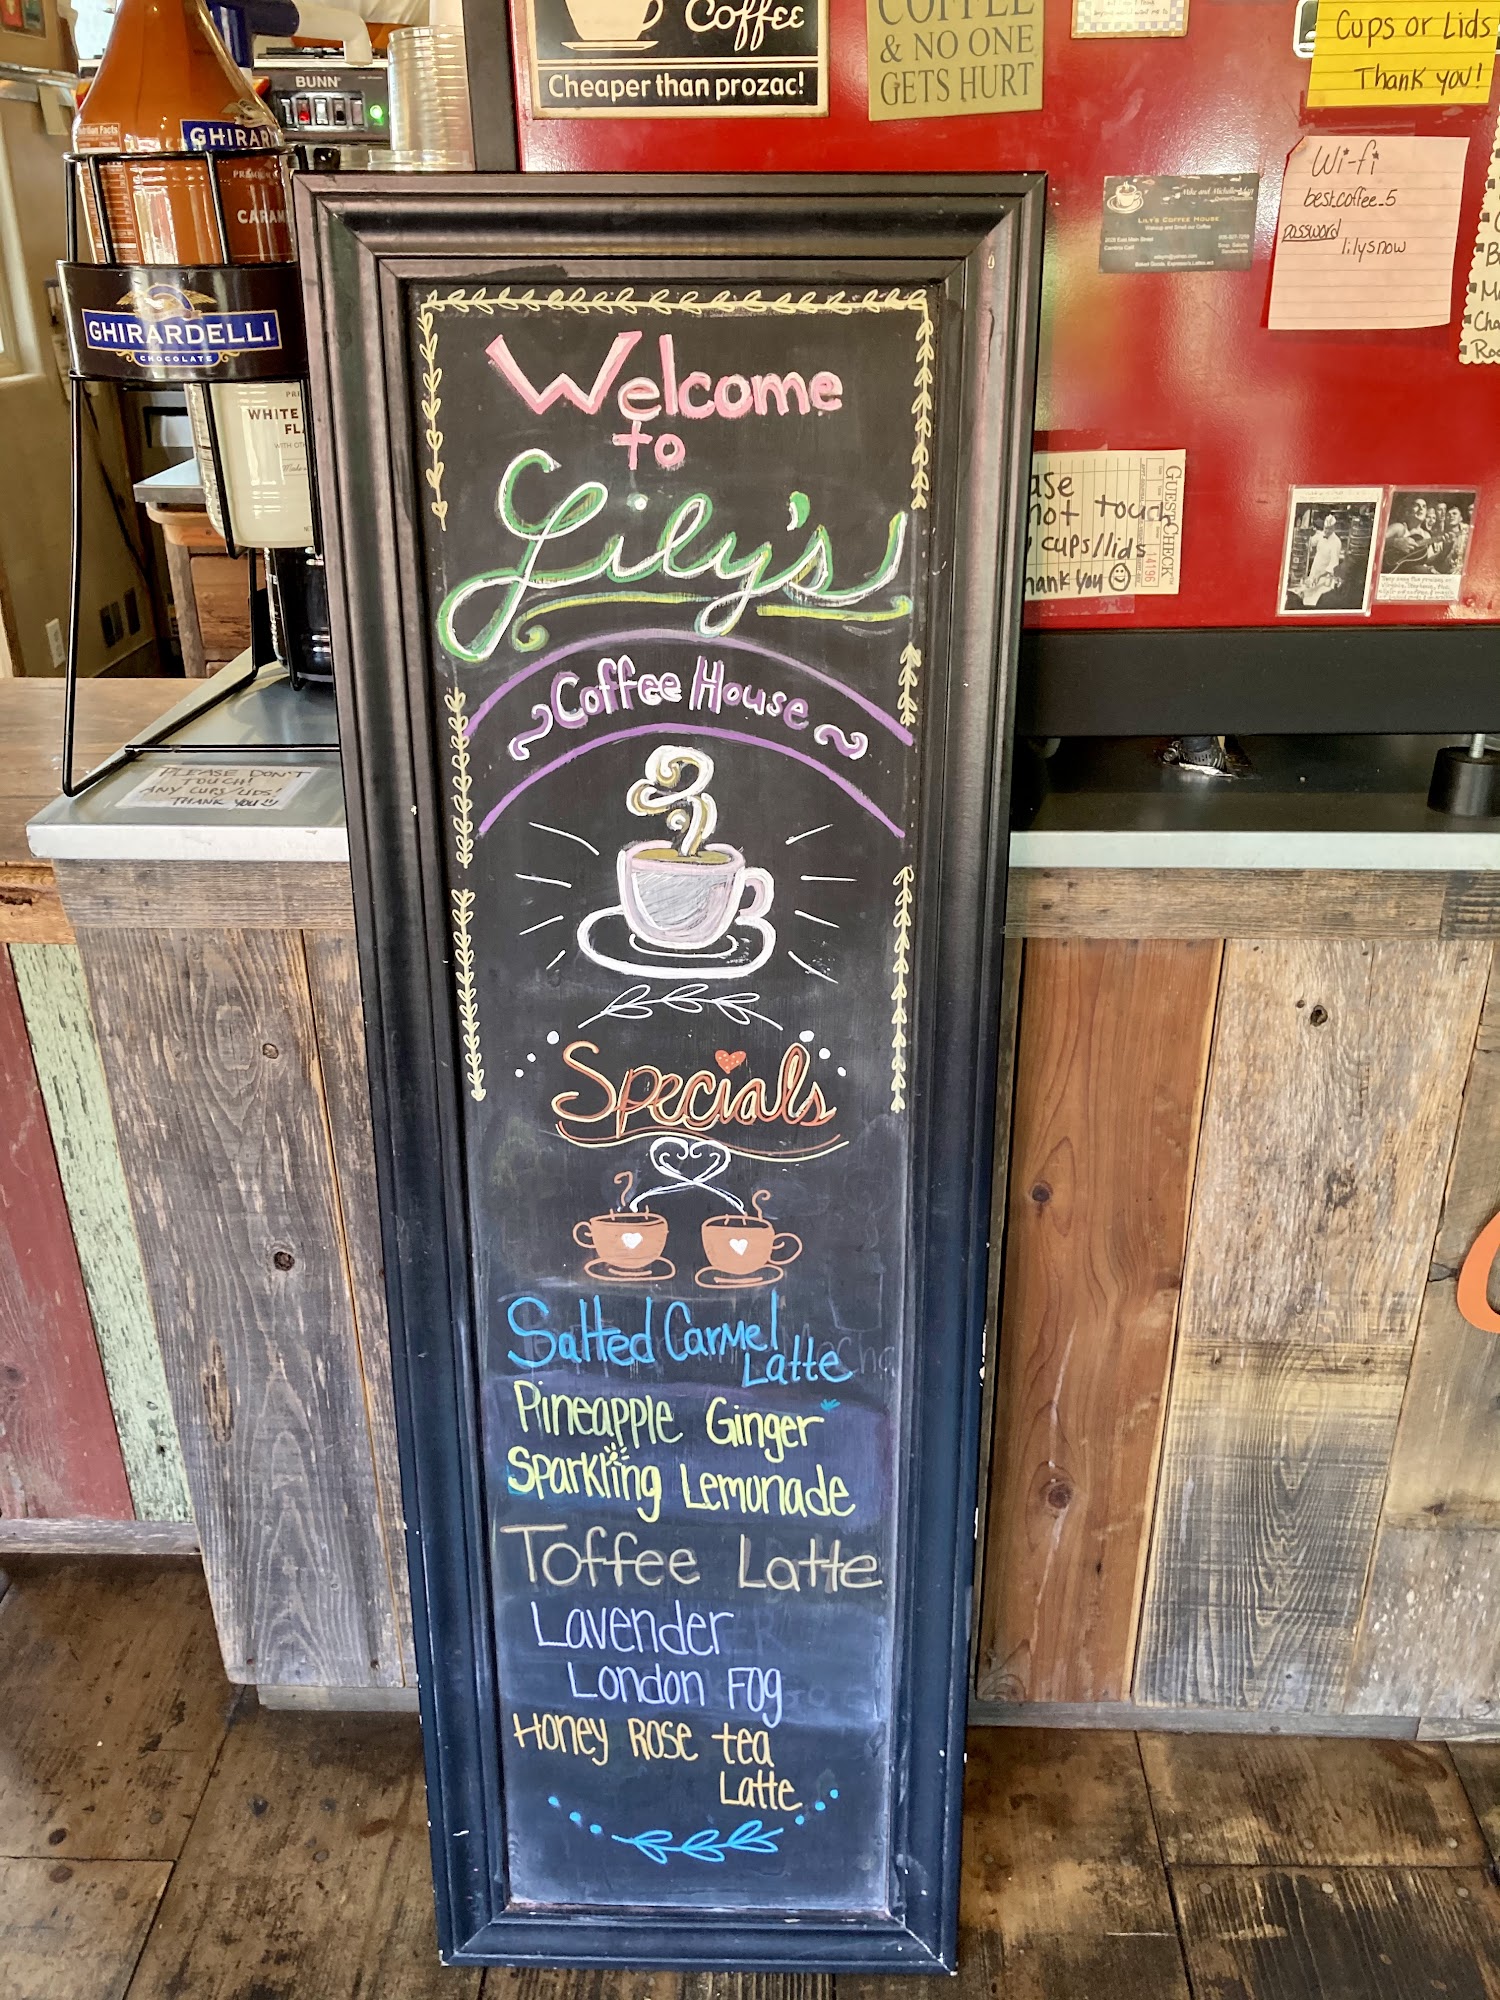 Coffee
Cheaper than prozac!
COFFEE
& NO ONE
GETS HURT
Cups or Lids
Thank you!
BUNN
Nutrition Facts
GHIRAR
CARAM
GHIRARDELLI
CHOCOLATE
WHITE
FLA
Wi-fi
best.coffee_5
password
lilysnow
Mike and Michelle
LILY'S COFFEE HOUSE
GUEST CHECK
ase
not touch
cups/lids
hank you
PLEASE DON'T
TOUCH!
ANY CUPS/LIDS!
THANK YOU
Welcome
to
Lily's
Coffee House
Specials
Salted Carmel
Latte
Pineapple Ginger
Sparkling Lemonade
Toffee Latte
Lavender
London Fog
Honey Rose tea
Latte